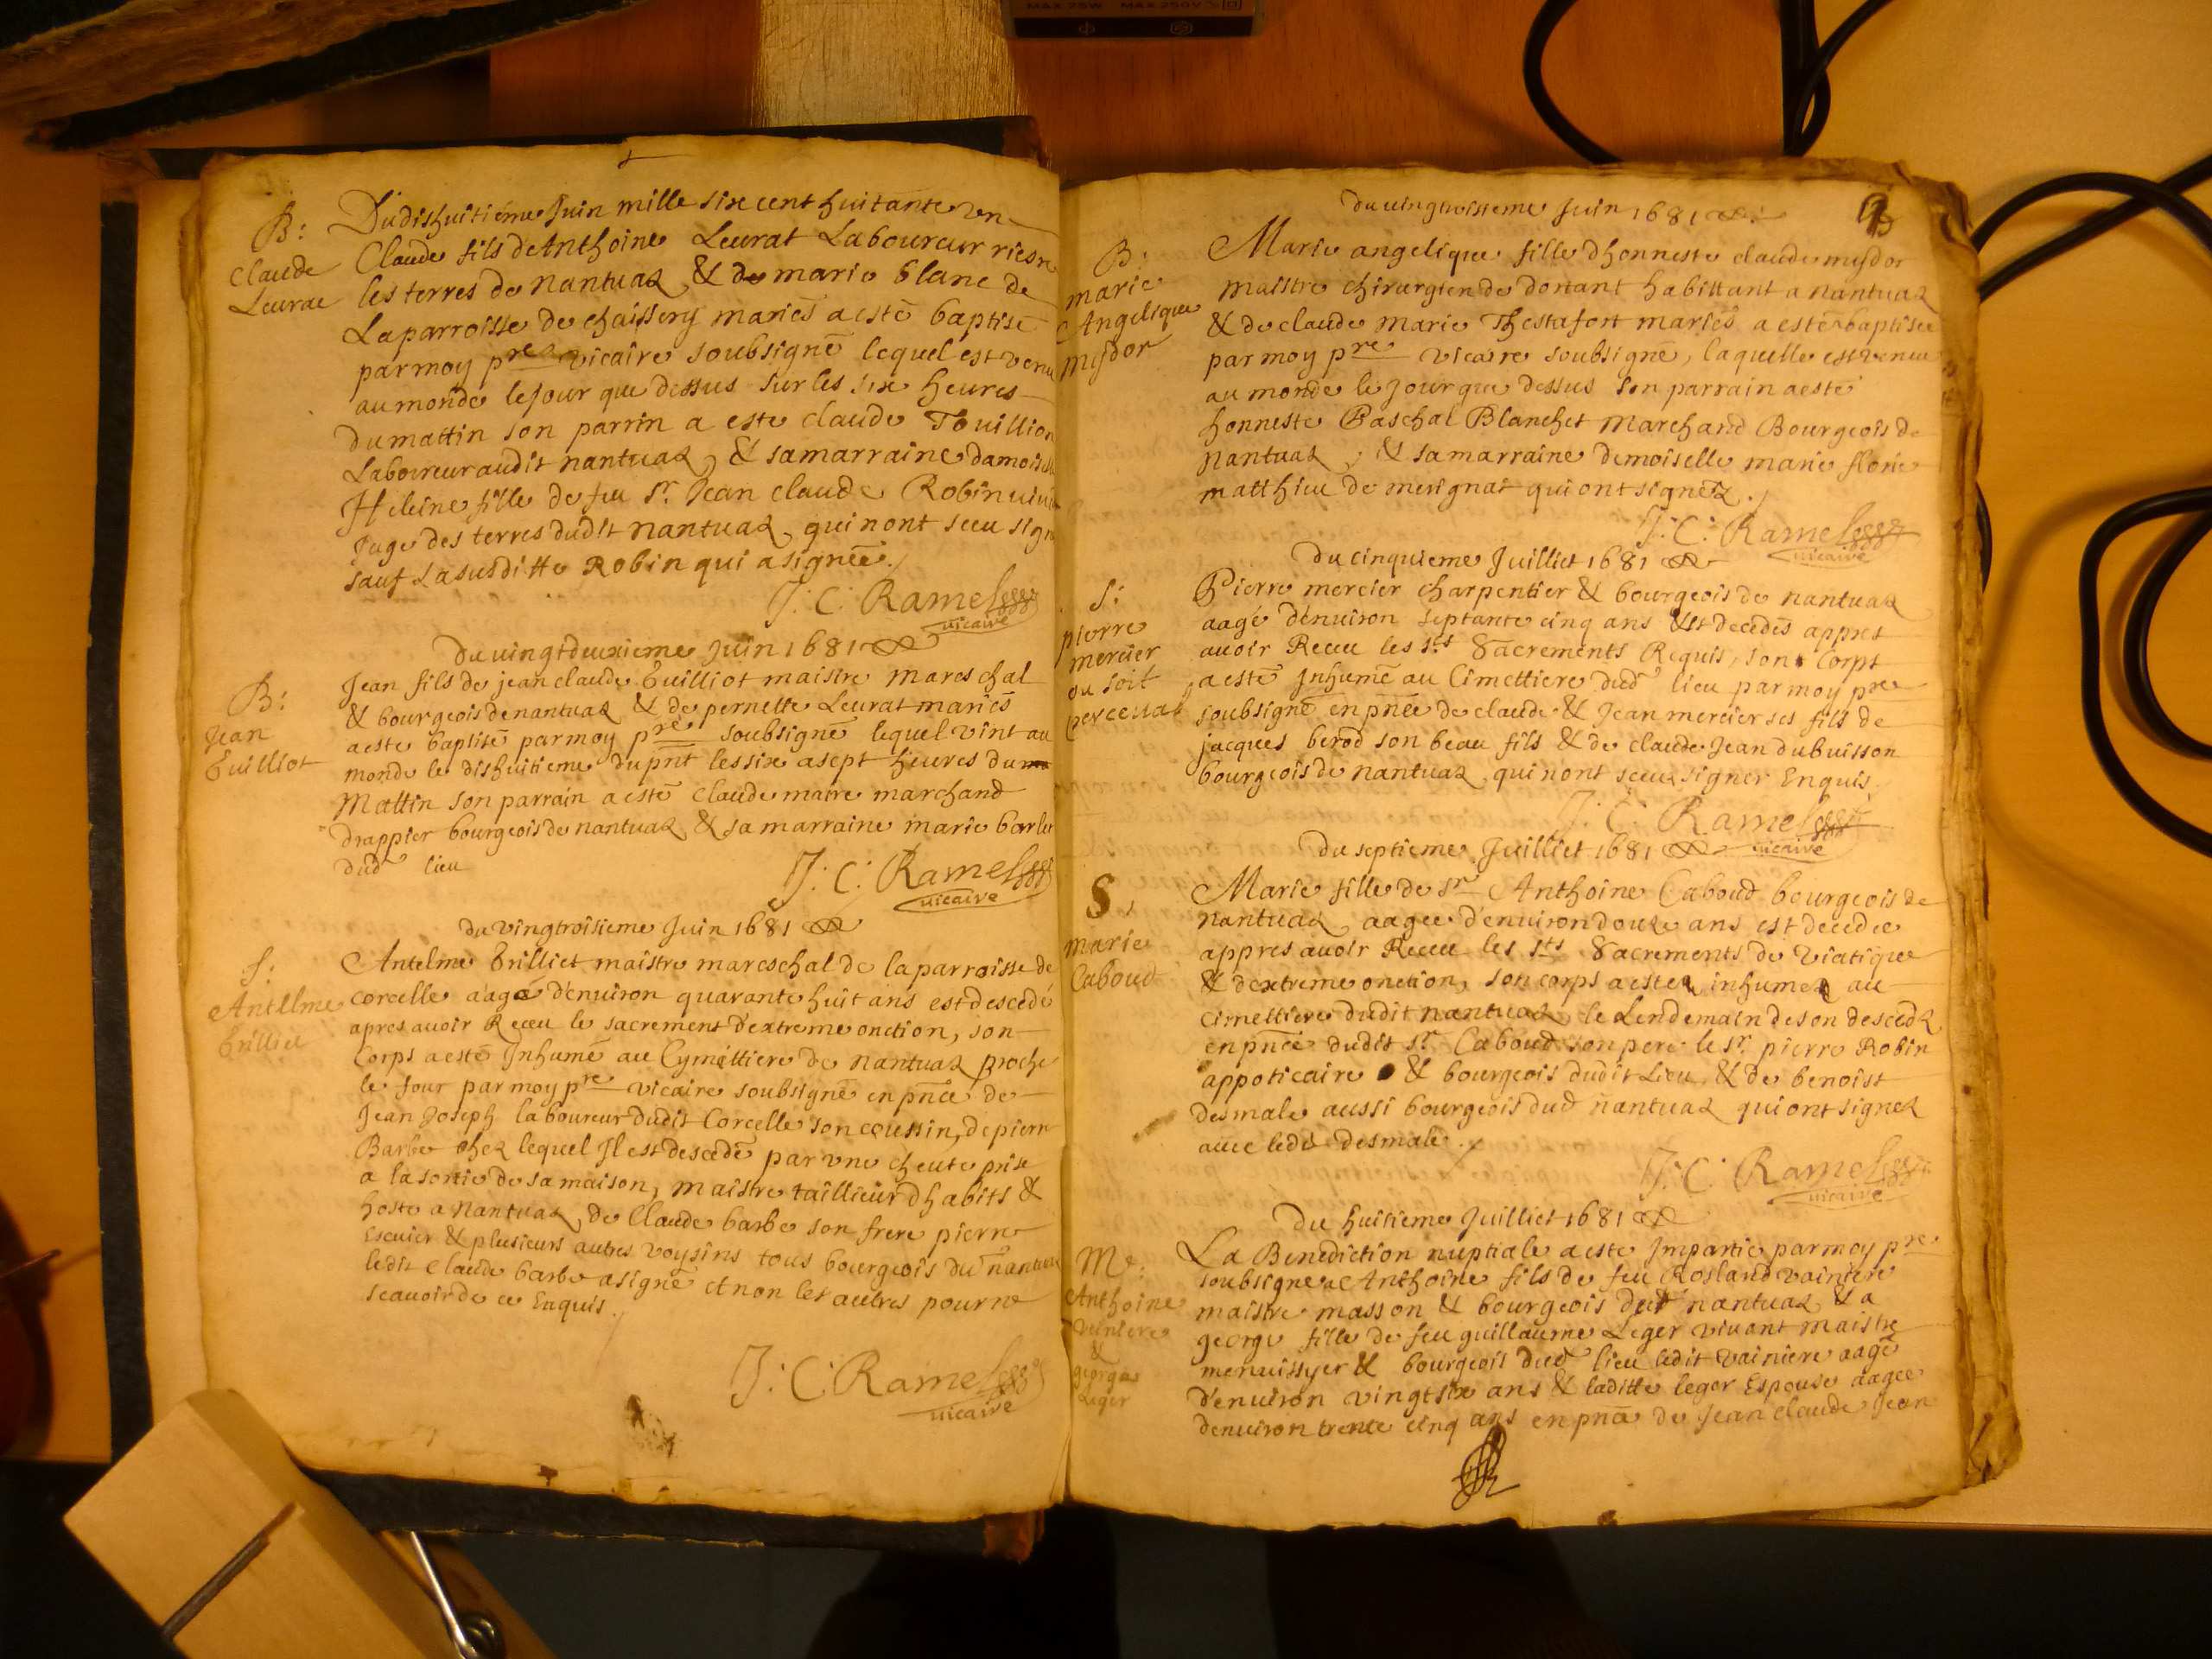 B:
Claude
Leurat
Du dishuitiéme Juin mille six cent huitante un
Claude fils de Anthoine Leurat Laboureur riesre
les terres de nantuaz, & de marie blanc de
La parroisse de chaissery mariés a esté baptisé
par moy pre vicaire soubsigné lequel est venu
au monde le jour que dessus sur les six heures
du mattin son parrin a este claude Touillion
Laboureur audit nantuaz, & sa marraine damoiselle
Heleine fille de feu Sr. Jean claude Robin vivant
Juge des terres dudit nantuaz, qui nont sceu signer
sauf La susditte Robin qui a signée./
J: C: Ramel
vicaire
Du vingtdeuxieme Juin 1681
B:
Jean
Tuilliot
Jean fils de jean claude Tuilliot maistre mareschal
& bourgeois de nantuaz & de pernette Leurat mariés
a esté baptisé par moy pre soubsigné lequel vint au
monde le dishuitieme du pnt les six a sept heures du
Mattin son parrain a esté claude maire marchand
drappier bourgeois de nantuaz & sa marraine marie
dud lieu
J: C: Ramel
vicaire
du vingtroisieme Juin 1681
S:
Antelme
Trilliet
Antelme Trilliet maistre mareschal de la parroisse de
corcelle aagé d'environ quarante huit ans est descedé
apres avoir Receu le sacrement d'extreme onction, son
Corps a esté Inhumé au Cymettiere de nantuaz proche
le four par moy pre vicaire soubsigné en pnce de
Jean Joseph laboureur dudit Corcelle son coussin, de pierre
Barbe chez lequel Il est descedé par une cheute prise
a la sortie de sa maison, maistre taillieur dhabits &
hoste a nantuaz, de Claude barbe son frere pierre
Escuier & plusieurs autres voysins tous bourgeois du nantuaz
ledit Claude barbe a signé et non les autres pour ne
scavoir de ce Enquis./
J: C: Ramel
vicaire
du vingtroisieme Juin 1681
B:
marie
Angelique
mysdor
Marie angelique fille dhonneste claude mysdor
maistre chirurgien de dortant habittant a nantuaz
& de claude marie Thestafort mariés a esté baptisée
par moy pre vicaire soubsigné, laquelle est venue
au monde le jour que dessus son parrain a esté
honneste Paschal Blanchet Marchand Bourgeois de
nantuaz, & sa marraine demoiselle marie florie
matthieu de merignat qui ont signez./
J: C: Ramel
vicaire
Du cinquieme Juilliet 1681
S:
pierre
mercier
ou soit
perceval
Pierre mercier charpentier & bourgeois de nantuaz
aagé d'environ septante cinq ans est decedés appres
avoir Receu les sts Sacrements Requis, son Corps
a esté Inhumé au Cimettiere dud lieu par moy pre
soubsigné en pnce de claude & Jean mercier ses fils de
jacques berod son beau fils & de claude Jean dubuisson
bourgeois de nantuaz, qui nont sceu signer Enquis.
J: C: Ramel
vicaire
Du septieme Juilliet 1681
S,
marie
Caboud
Marie fille de sr Anthoine Caboud bourgeois de
nantuaz aagee d'environ douze ans est decedee
appres avoir Receu les sts Sacrements de viatique
& d'extreme onction, son corps a este inhumez au
cimettiere dudit nantuaz le Lendemain de son descedz
en pnce dudit sr. Caboud son pere le sr. pierre Robin
appoticaire & bourgeois dudit Lieu & de benoist
desmale aussi bourgeois dud nantuaz qui ont signez
avec ledit desmale./
J: C: Ramel
vicaire
Du huitieme Juilliet 1681
Me:
Anthoine
vainiere
&
george
Leger
La Benediction nuptiale a este Impartie par moy pre
soubsigne a Anthoine fils de feu Rosland vainiere
maistre masson & bourgeois dud nantuaz & a
george fille de feu guillaume Leger vivant maistre
menuissyer & bourgeois dud lieu ledit vainiere aagé
d'environ vingt six ans & laditte leger Espouse aagée
denviron trente cinq ans en pnce de Jean claude Jean